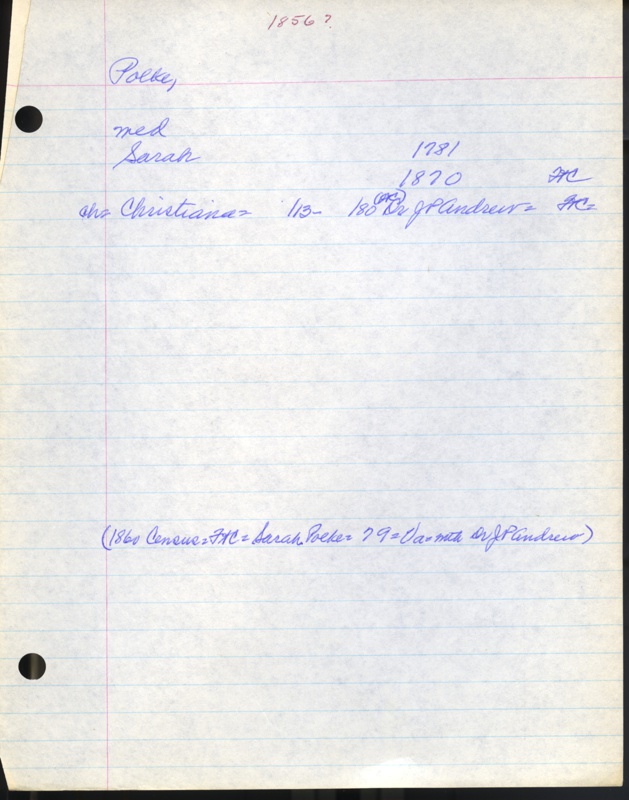 1856?
Polke,
med
Sarah 1781
1870 FHC
ch= Christiana= 113- 180 Dr JP Andrew= FHC=
(1860 Census=FHC= Sarah Polke= 79=Va= with Dr JP Andrew)